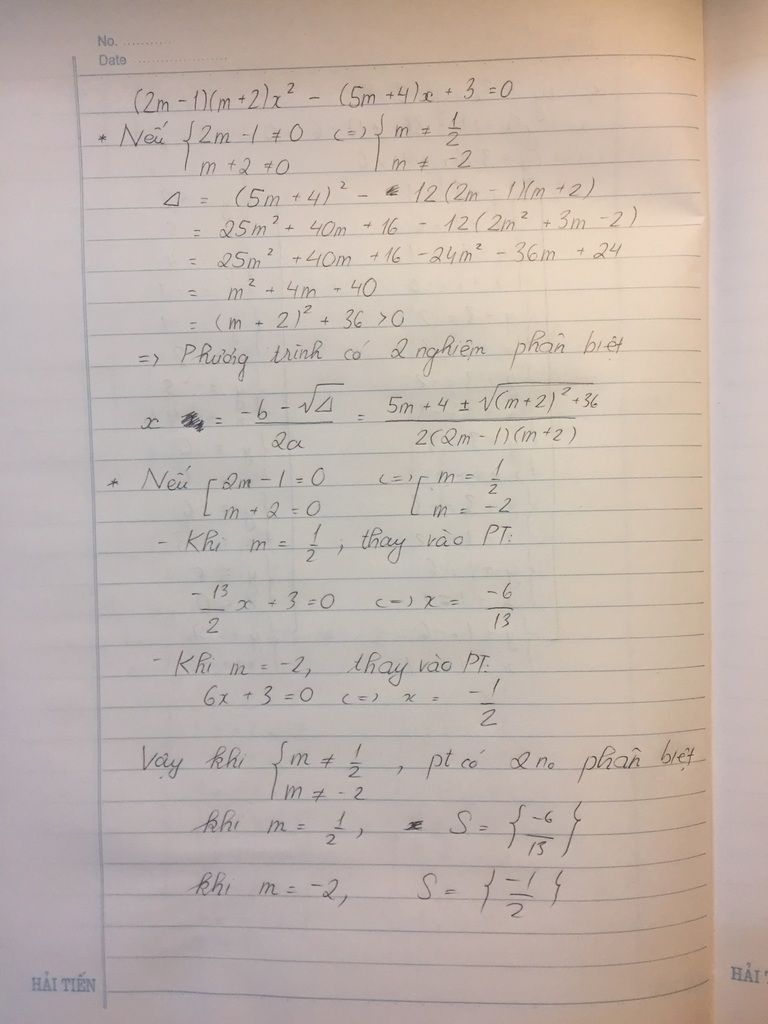 No. ............
Date ......................
(2m - 1)(m + 2)x² - (5m + 4)x + 3 = 0
* Nếu { 2m - 1 ≠ 0 <=> { m ≠ 1/2
m + 2 ≠ 0 m ≠ -2
Δ = (5m + 4)² - 12(2m - 1)(m + 2)
= 25m² + 40m + 16 - 12(2m² + 3m - 2)
= 25m² + 40m + 16 - 24m² - 36m + 24
= m² + 4m + 40
= (m + 2)² + 36 > 0
=> Phương trình có 2 nghiệm phân biệt
x = (-b - √Δ)/2a = (5m + 4 ± √((m + 2)² + 36))/(2(2m - 1)(m + 2))
* Nếu [ 2m - 1 = 0 <=> [ m = 1/2
m + 2 = 0 m = -2
- Khi m = 1/2, thay vào PT:
-13/2 x + 3 = 0 <=> x = -6/13
- Khi m = -2, thay vào PT:
6x + 3 = 0 <=> x = -1/2
Vậy khi { m ≠ 1/2 , pt có 2 no phân biệt
m ≠ -2
khi m = 1/2, S = {-6/13}
khi m = -2, S = {-1/2}
HẢI TIẾN
HẢI